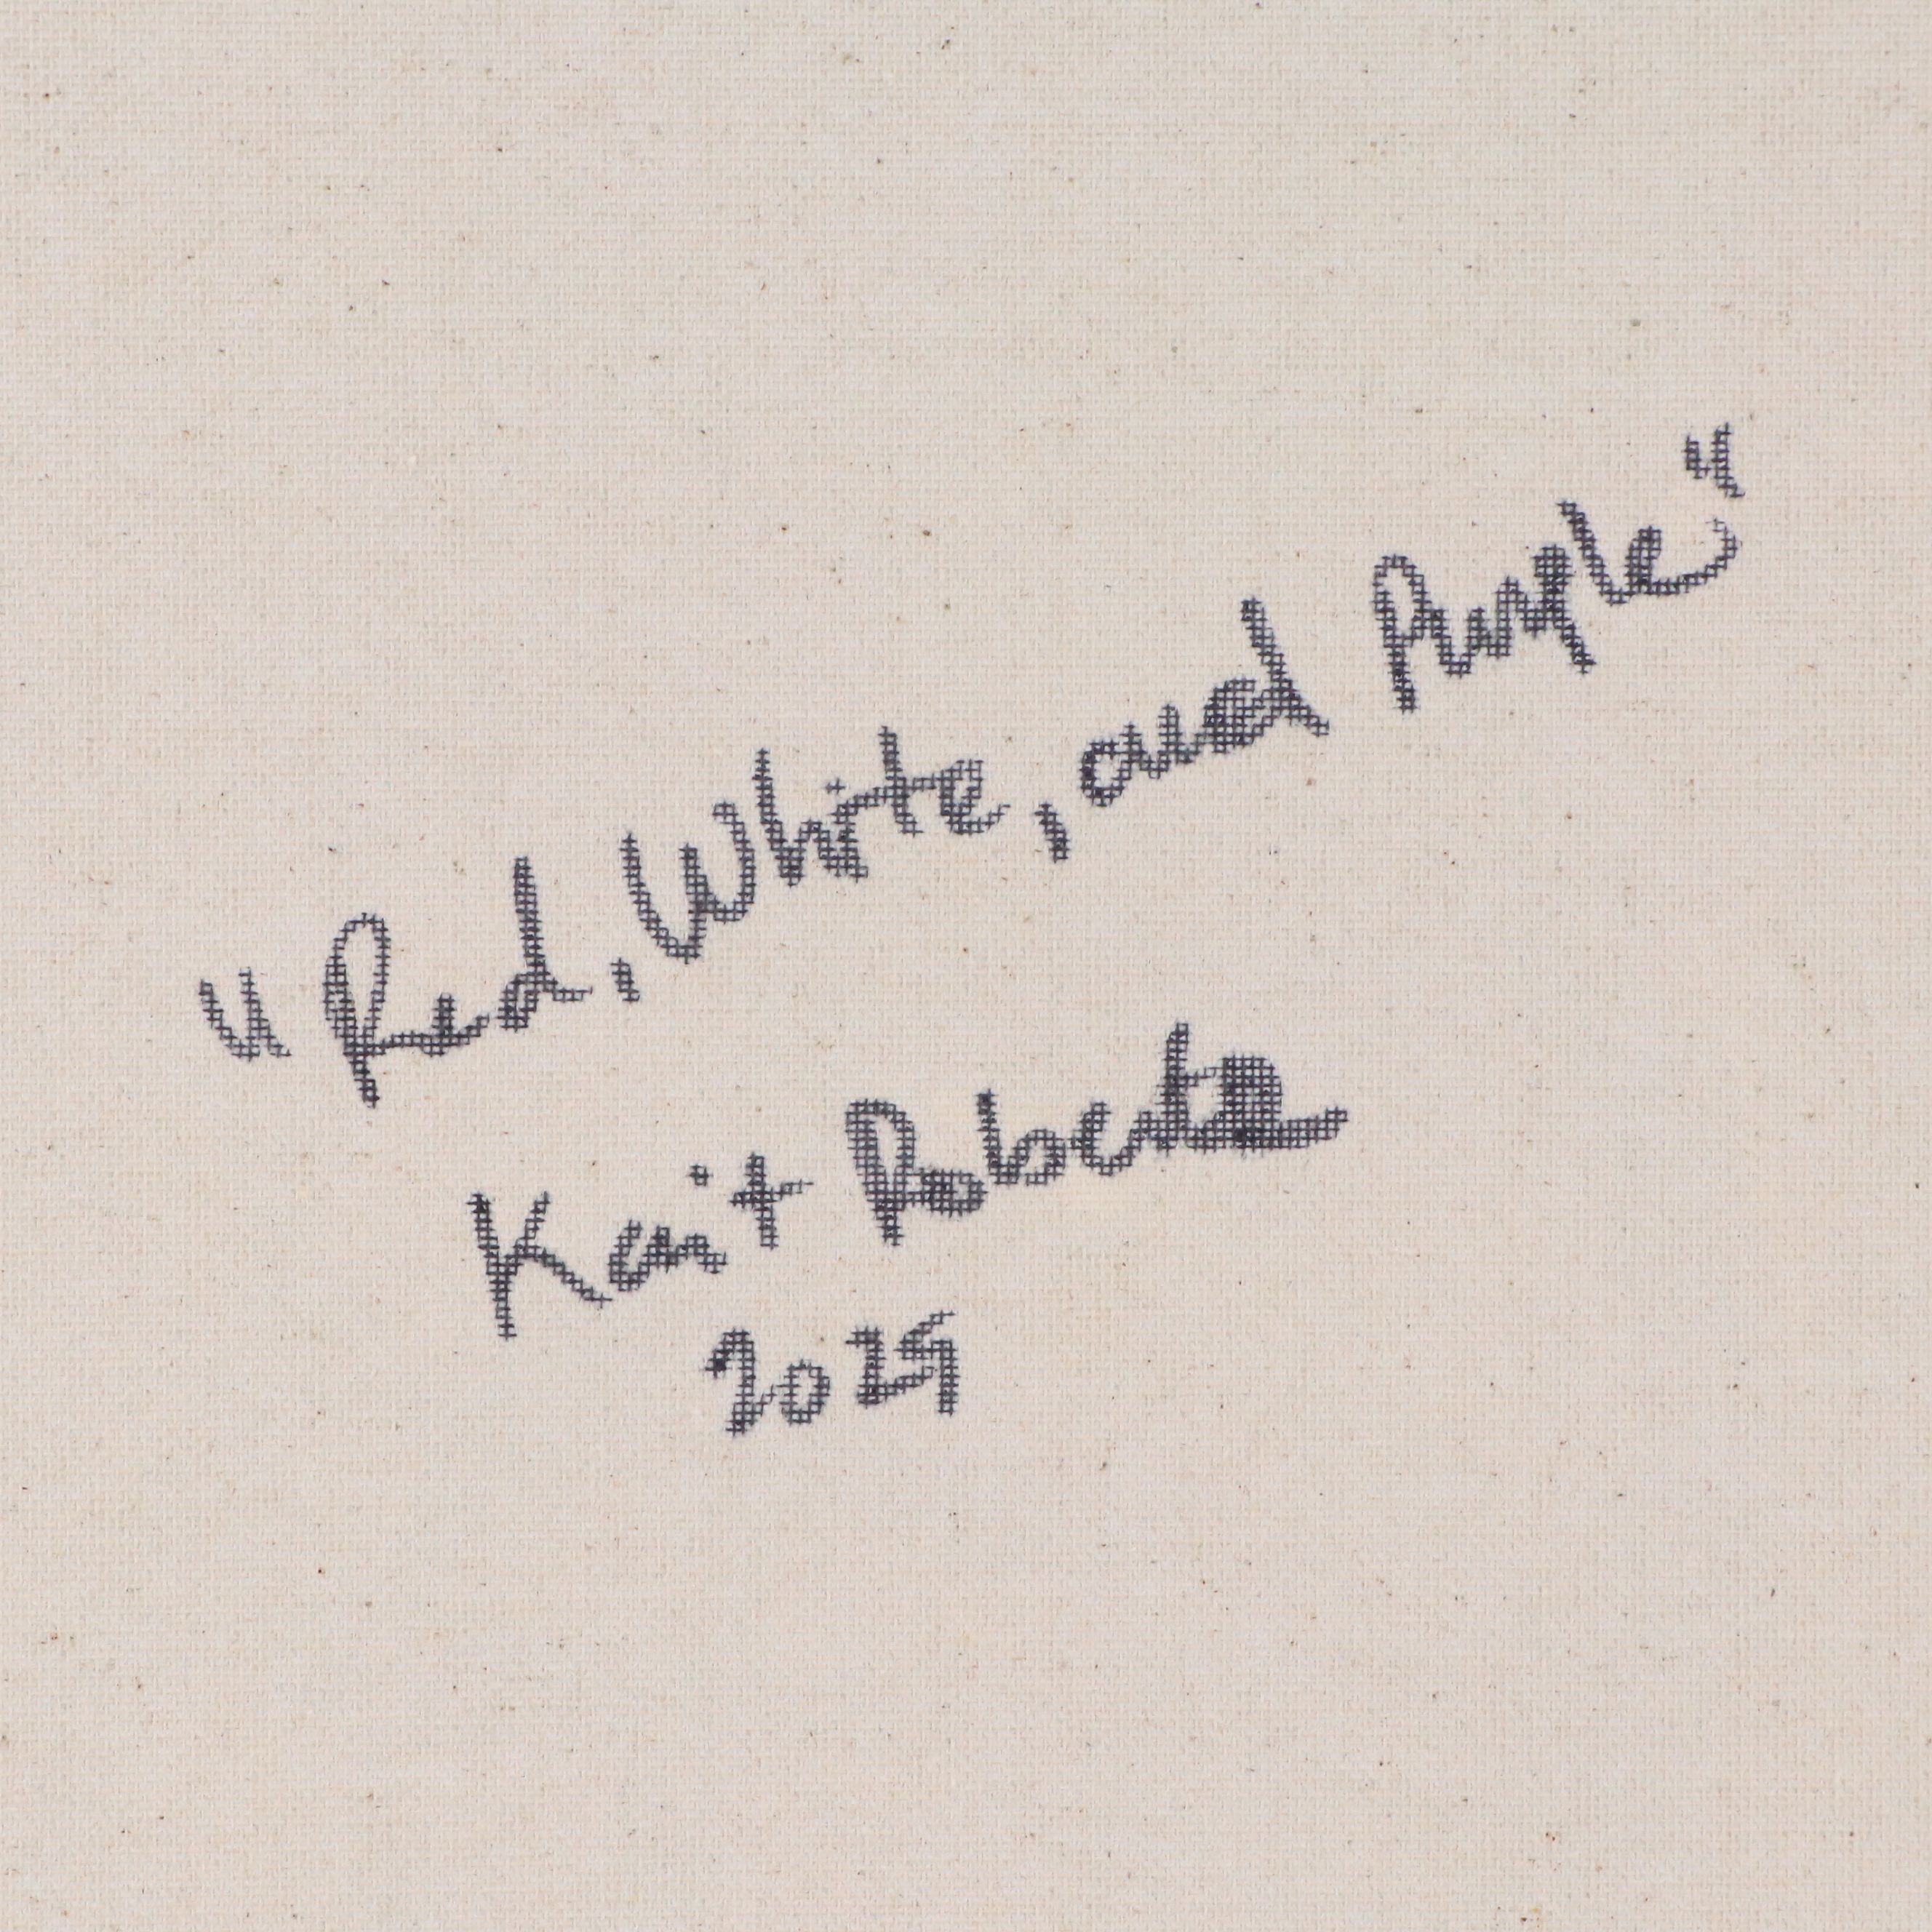 "Red, White, and Purple"
Kait Roberts
2024